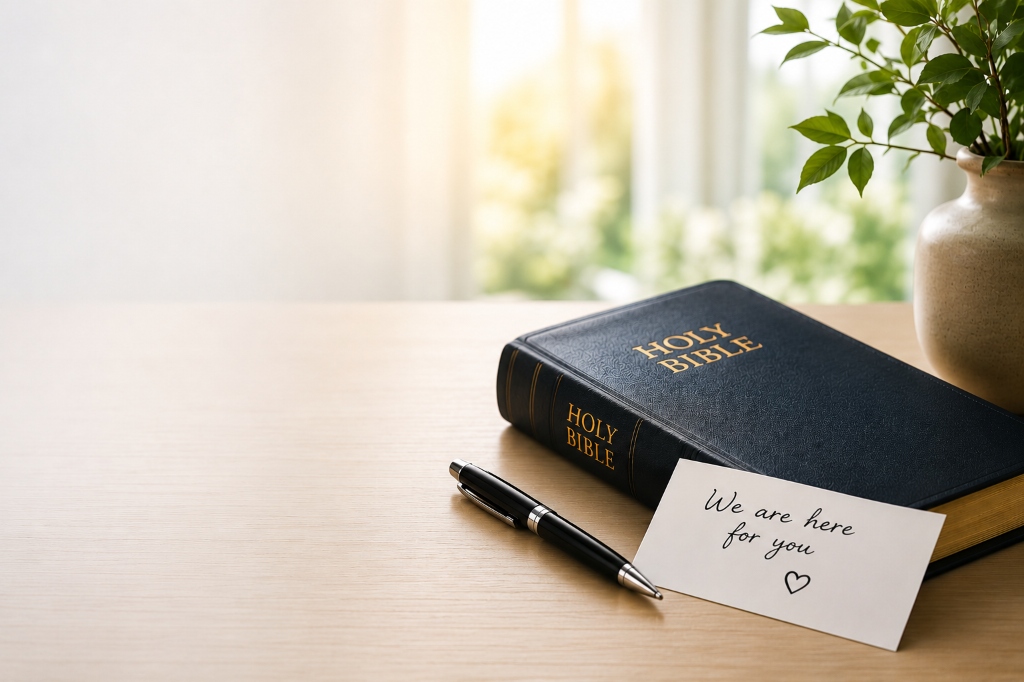 HOLY
BIBLE
HOLY
BIBLE
We are here
for you
♡